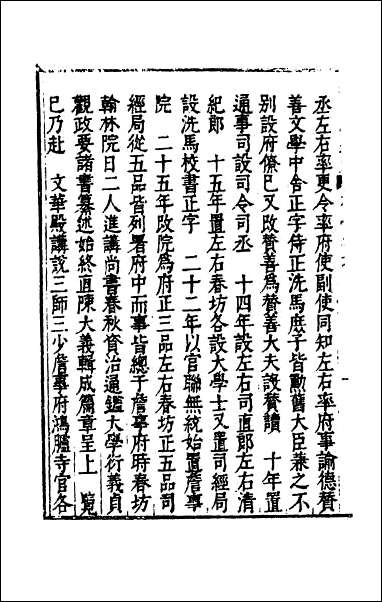 丞左右率更令率府使副使同知左右率府事諭德贊
善文學中舍正字侍正洗馬庶子皆勳舊大臣兼之不
別設府僚已又改贊善爲贊善大夫設贊讀　十年置
通事司設司令司丞　十四年設左右司直郎左右清
紀郎　十五年置左右春坊各設大學士又置司經局
設洗馬校書正字　二十二年以官聯無統始置詹事
院　二十五年改院爲府正三品左右春坊正五品司
經局從五品皆列署府中而事皆總于詹事府時春坊
翰林院日二人進講尚書春秋資治通鑑大學衍義貞
觀政要諸書纂述始終直陳大義輯成篇章呈上　覽
已乃赴　文華殿講說三師三少詹事府鴻臚寺官各